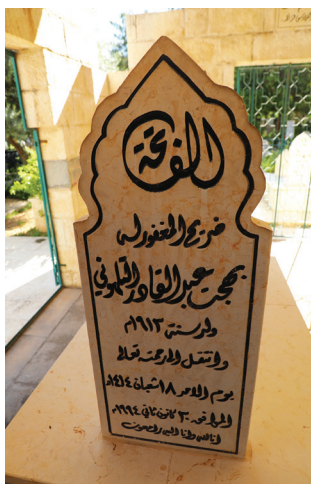 الفاتحة
ضريح المغفور له
بهجت عبد القادر التلهوني
ولد سنة ١٩١٣م
وانتقل الى رحمته تعالى
يوم الاحد ١٨ شعبان ١٤١٤هـ
الموافق ٣٠ كانون ثاني ١٩٩٤م
انا لله وانا اليه راجعون